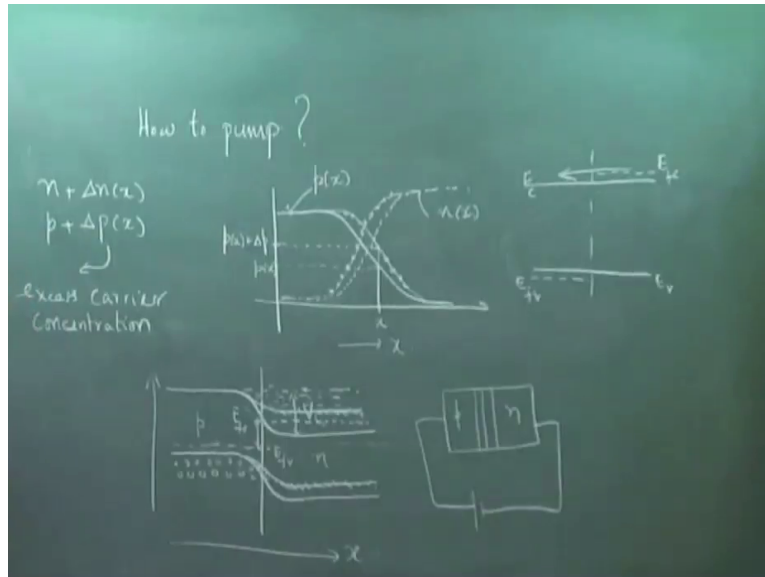 How to pump ?
n + Δn(x)
p + Δp(x)
excess carrier
concentration
p(x)
n(x)
p(x)+Δp
p(x)
x
→ x
E_c
E_fc
E_fv
E_v
p
E_fc
V
E_fv
n
→ x
p
n